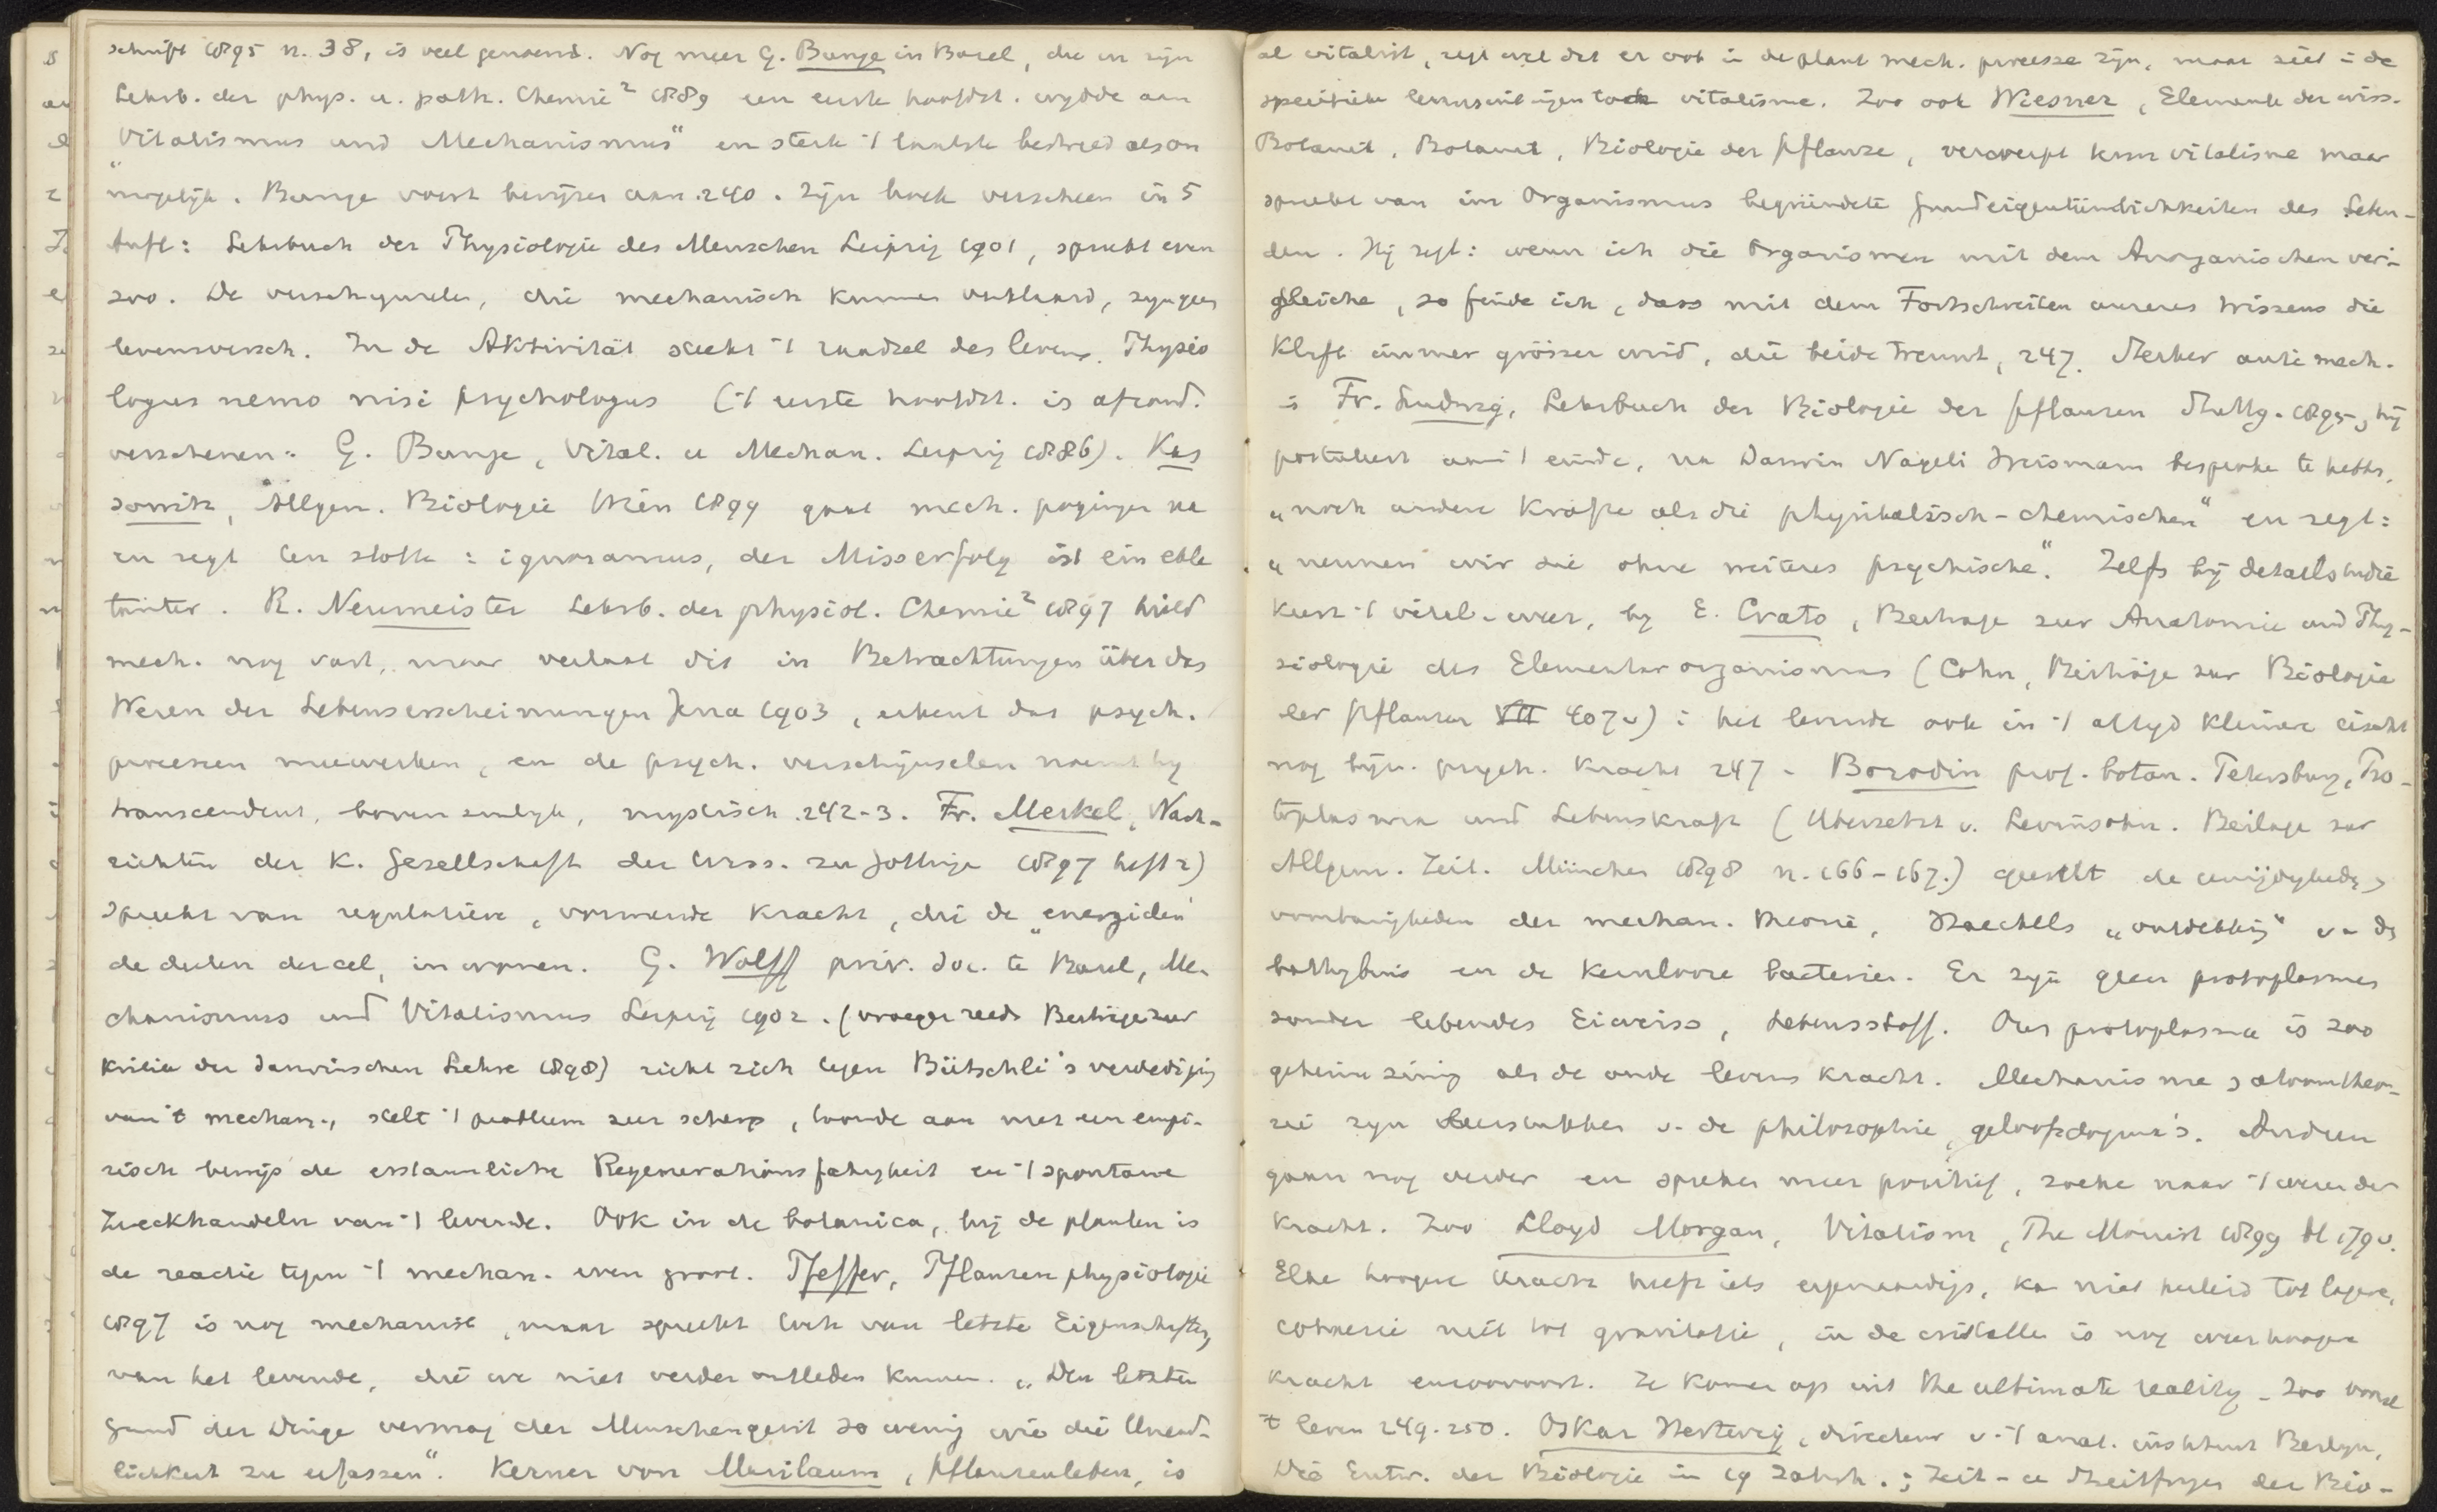 schrift 1895 n. 38, is veel genoemd. Nog meer G. Bunge in Basel, die in zijn
Lehrb. der phys. u. path. Chemie² 1889 een eerste hoofdst. wijdde aan
"Vitalismus und Mechanismus" en sterk 't laatste bestreed als on
mogelijk. Bunge voert bewijzen aan. 240. Zijn boek verscheen in 5
Aufl: Lehrbuch der Physiologie des Menschen Leipzig 1901, spreekt even
zoo. De verschijnselen, die mechanisch kunnen verklaard, zijn geen
levensversch. In de Aktivität steekt 't raadsel des levens. Physio
logus nemo nisi psychologus ('t eerste hoofdst. is afzond.
verschenen: G. Bunge, Vital. u Mechan. Leipzig 1886). Kas
sowitz, Allgem. Biologie Wien 1899 gaat mech. pogingen na
en zegt ten slotte: ignoramus, der Misserfolg ist ein ekla
tanter. R. Neumeister Lehrb. der physiol. Chemie² 1897 hield
mech. nog vast, maar verlaat dit in Betrachtungen über das
Wesen der Lebenserscheinungen Jena 1903, erkent dat psych.
processen meewerken, en de psych. verschijnselen noemt hij
transcendent, bovenzinlijk, mystisch. 242-3. Fr. Merkel, Nach-
richten der K. Gesellschaft der Wiss. zu Göttinge 1897 heft 2)
spreekt van regulatieve, vormende kracht, die de "energiden"
de deelen der cel, in wonen. G. Wolff priv. doc. te Basel, Me-
chanismus und Vitalismus Leipzig 1902. (vroeger reeds Beiträge zur
Kritik der Darwinschen Lehre 1898) richt zich tegen Bütschli's verdediging
van 't mechan., stelt 't probleem zeer scherp, toonde aan met een empi-
risch bewijs de erstaunliche Regenerationsfähigheit en 't spontane
Zweckhandeln van 't levende. Ook in de botanica, bij de planten is
de reactie tegen 't mechan. even groot. Pfeffer, Pflanzenphysiologie
1897 is nog mechanist, maar spreekt toch van letzte Eigenschaften,
van het levende, die we niet verder ontleden kunnen. "Den letzten
Grund der Dinge vermag der Menschengeist so wenig wie die Unend-
lichkeit zu erfassen". Kerner von Marilaum, Pflanzenleben, is
al vitalist, zegt wel dat er ook in de plant mech. processe zijn, maar ziet in de
specifieke levensuitingen toch vitalisme. Zoo ook Wiesner, Elemente der wiss.
Botanik, Botanik, Biologie der Pflanze, verwerpt krm vitalisme maar
spreekt van im Organismus begründete Grundeigentümlichkeiten des Leben-
den. Hij zegt: wenn ich die Organismen mit dem Anorganischen ver-
gleiche, so finde ich, dass mit dem Fortschreiten unseres Wissens die
Kluft immer grösser wird, die beide trennt, 247. Sterker anti mech.
is Fr. Ludwig, Lehrbuch der Biologie der Pflanzen Stuttg. 1895, hij
postuleert aan 't einde, na Darwin Nägeli Weismann besproken te hebben,
"noch andere Kräfte als die physikalisch-chemischen" en zegt:
"nennen wir sie ohne weiteres psychische". Zelfs bij detailstudie
keert 't vital. weer, bij E. Crato, Beiträge zur Anatomie und Phy-
siologie des Elementarorganismus (Cohn, Beiträge zur Biologie
der Pflanzen VII 407v): het levende ook in 't altijd kleinere eischt
nog bijz. psych. kracht 247. Borodin prof. botan. Petersburg, Pro-
toplasma und Lebenskraft (Ubersetzt v. Levinsohn. Beilage zur
Allgem. Zeit. München 1898 n. 166-167.) geeselt de
der mechan. theorie, Haeckels "ontdekking" v. de
bathybius en de kernloore bacterien. Er zijn geen protoplasmas
zonder lebendes Eiweiss, Lebensstoff. Ons protoplasma is zoo
geheimzinnig als de oude levens kracht. Mechanisme & atoomtheo-
rie zijn v. de philosophie, geloofsdogma's. Anderen
gaan nog verder en spreken meer positief, zoeke naar 't wezen der
kracht. Zoo Lloyd Morgan, Vitalism, The Monist 1899 bl 179v.
Elke hoogere kracht heeft iets eigenaardigs, kan niet herleid tot lagere,
cohaesie niet tot gravitatie, in de cristallen is nog weer hoogere
kracht enzoovoort. Ze komen op uit the ultimate reality. Zoo vooral
't leven 249-250. Oskar Hertwig, directeur v. 't anat. instituut Berlyn,
Die Entw. der Biologie in 19 Jahrh.; Zeit- u Streitfragen der Bio-